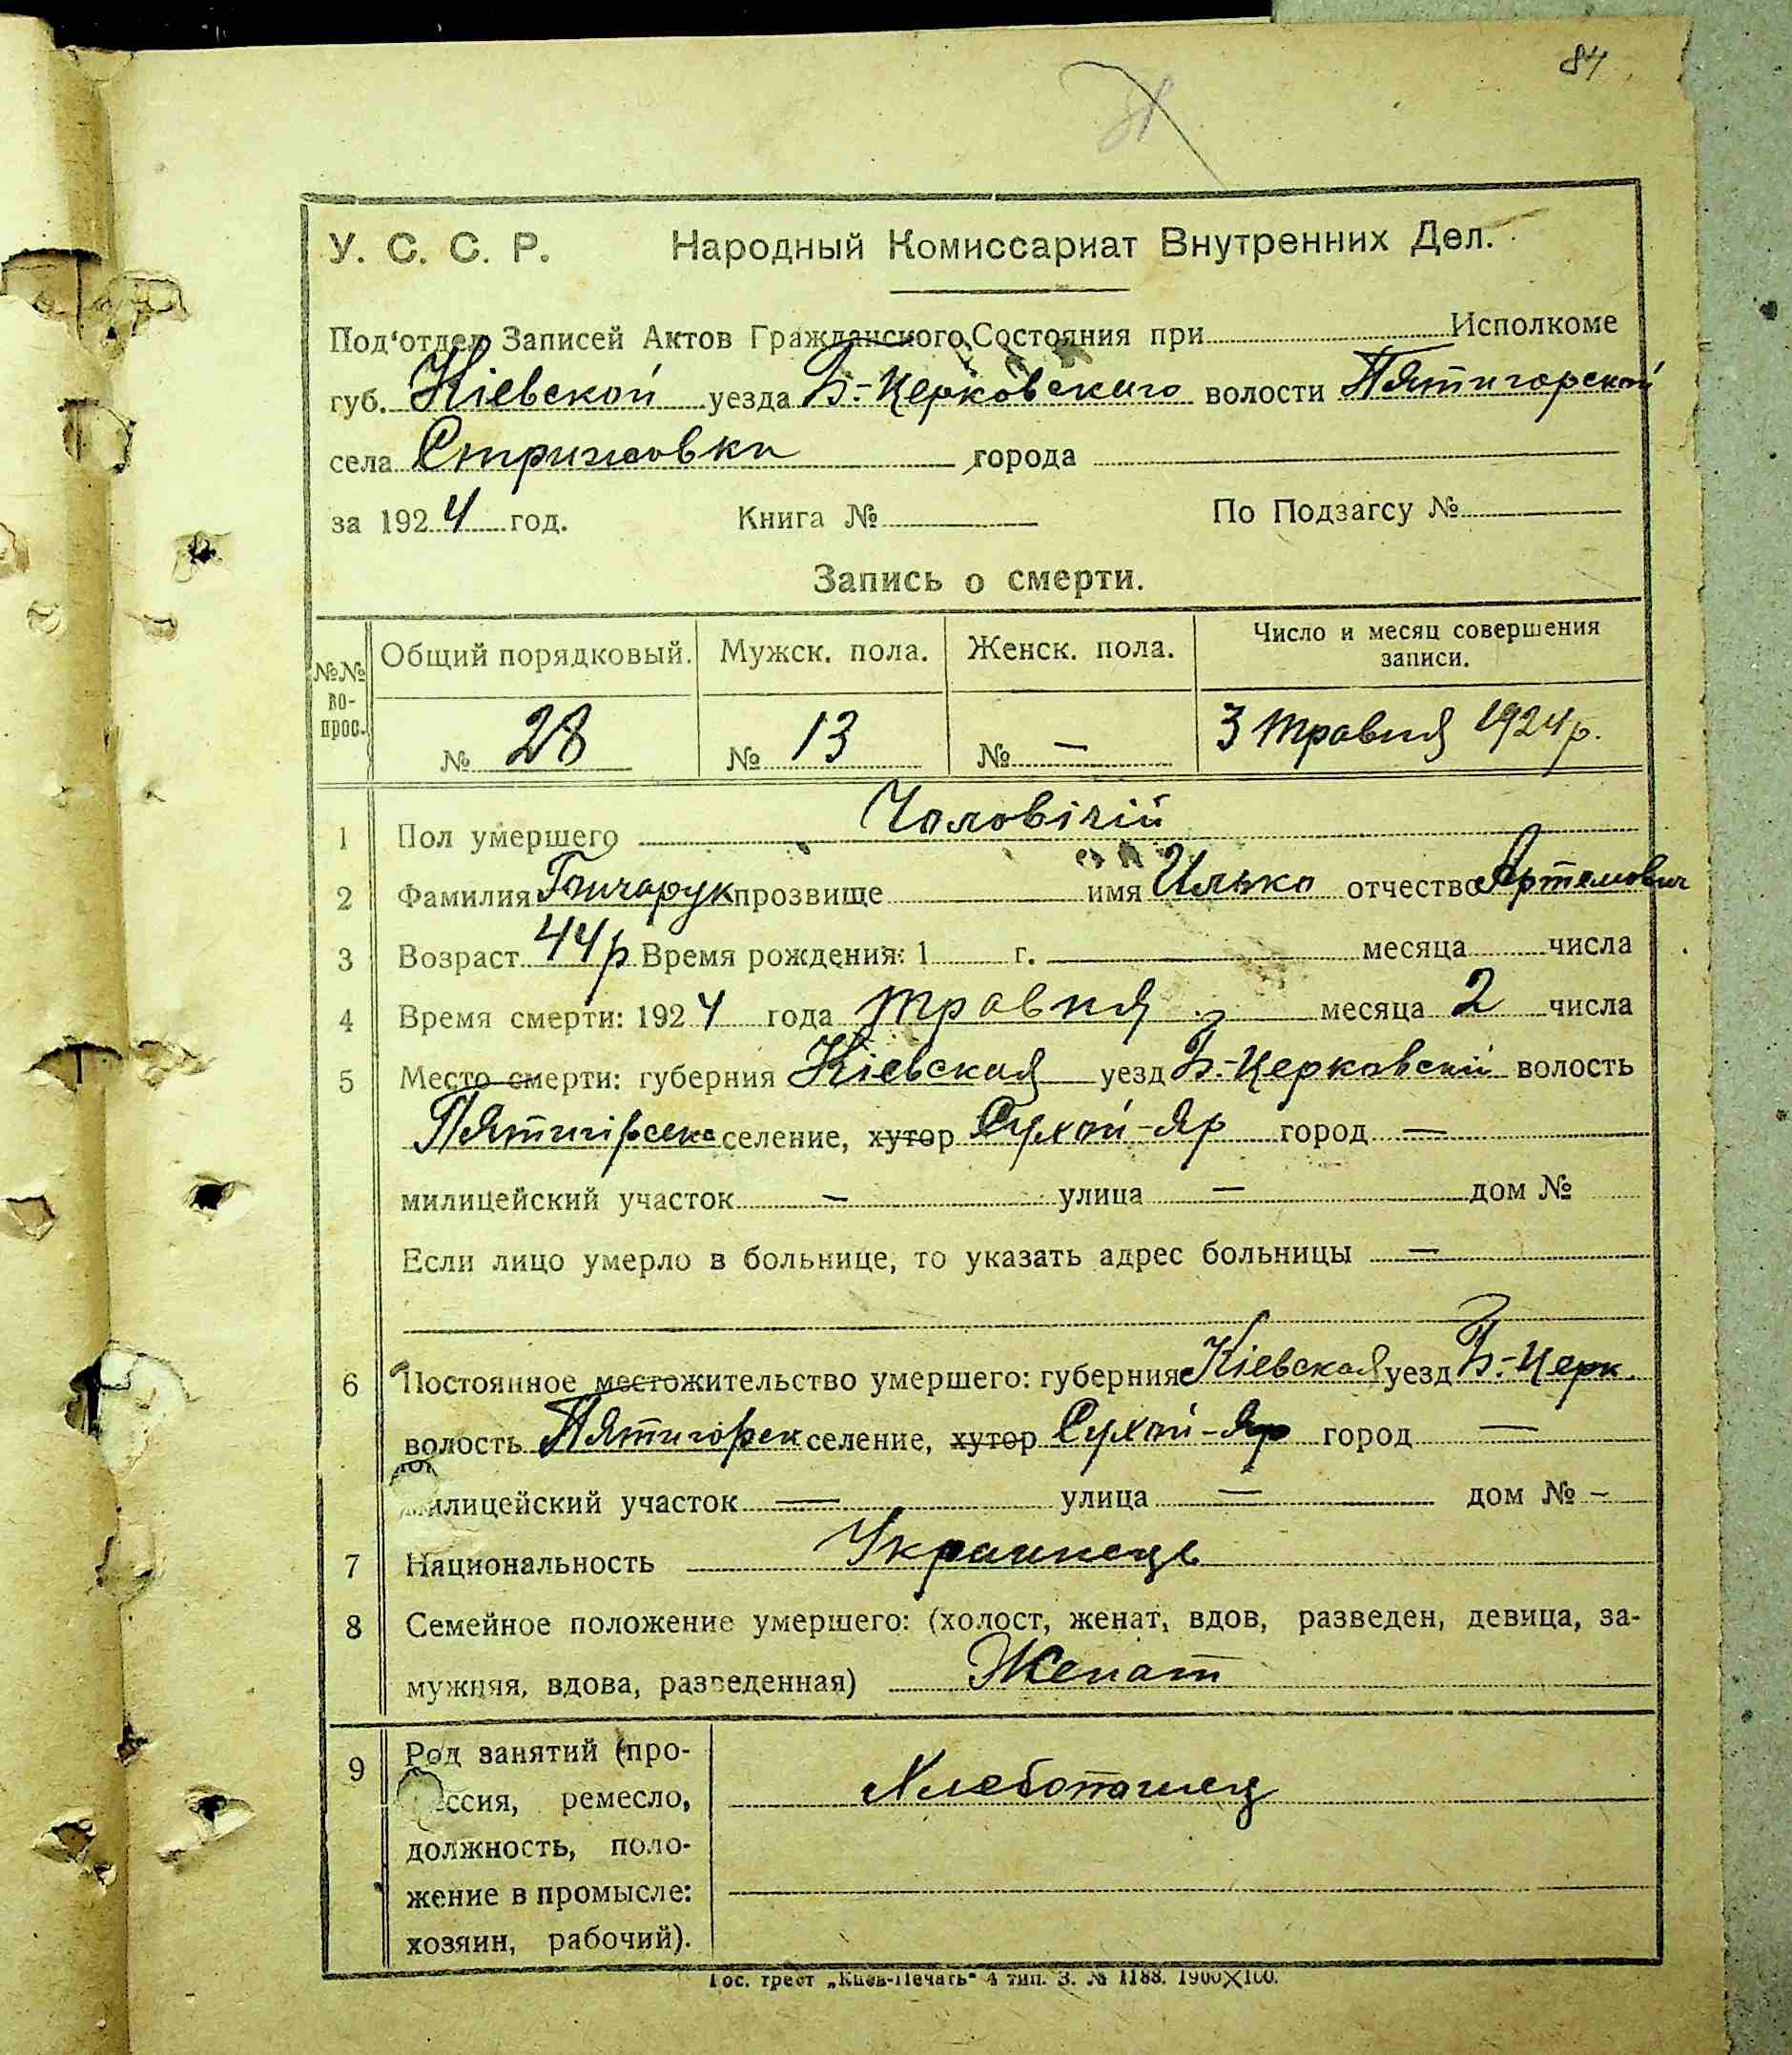 84
У. С. С. Р. Народный Комиссариат Внутренних Дел.
Под'отдел Записей Актов Гражданского Состояния при Исполкоме
губ. Кіевской уезда Б.-Церковского волости Пятигорской
села Стрижовка города
за 1924 год. Книга № По Подзагсу №
Запись о смерти.
№№ во-прос. Общий порядковый. Мужск. пола. Женск. пола. Число и месяц совершения записи.
№ 28 № 13 № — 3 травня 1924 р.
1 Пол умершего Чоловічій
2 Фамилия Гончарук прозвище имя Илько отчество Артемович
3 Возраст 44 р Время рождения: 1 г. месяца числа
4 Время смерти: 1924 года травня месяца 2 числа
5 Место смерти: губерния Кіевская уезд Б.-Церковскій волость
Пятигірска селение, хутор Сухой-Яр город —
милицейский участок — улица — дом №
Если лицо умерло в больнице, то указать адрес больницы —
6 Постоянное местожительство умершего: губерния Кіевская уезд Б.-Церк.
волость Пятигорск селение, хутор Сухой-Яр город —
милицейский участок — улица — дом № -
7 Национальность Украинець
8 Семейное положение умершего: (холост, женат, вдов, разведен, девица, за-
мужняя, вдова, разведенная) Женат
9 Род занятий (про-
ссия, ремесло, Хлеботашец
должность, поло-
жение в промысле:
хозяин, рабочий).
Гос. трест „Киев-Печать" 4 тип. З. № 1188. 1900×100.